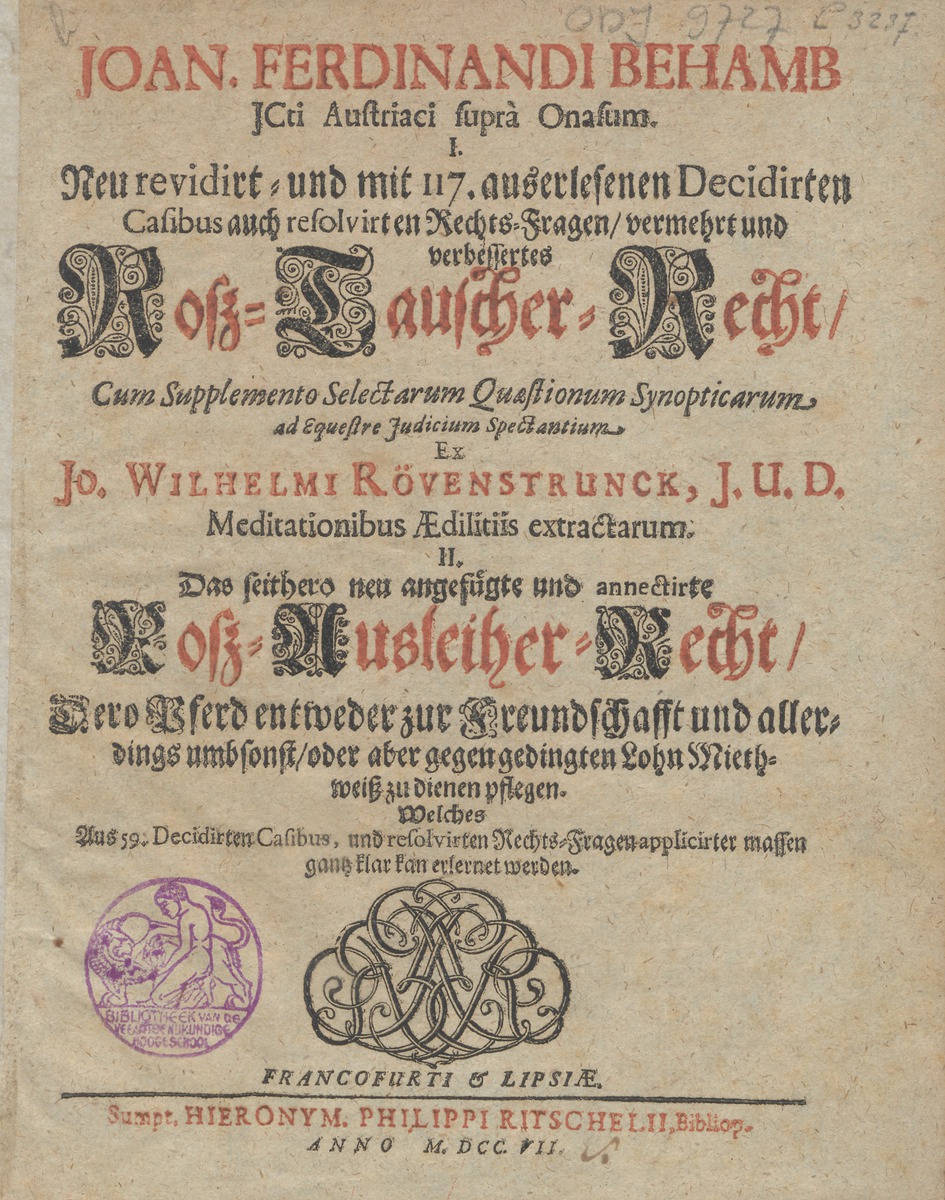 ODJ 9727 C 3237.
JOAN. FERDINANDI BEHAMB
JCti Auſtriaci ſuprà Onaſum.
I.
Neu revidirt- und mit 117. auserleſenen Decidirten
Caſibus auch reſolvirten Rechts-Fragen/ vermehrt und
verbeſſertes
Roſz-Tauſcher-Recht/
Cum Supplemento Selectarum Quæſtionum Synopticarum
ad Equeſtre Judicium Spectantium
Ex
JO. WILHELMI RÖVENSTRUNCK, J. U. D.
Meditationibus Ædilitiis extractarum.
II.
Das ſeithero neu angefügte und annectirte
Roſz-Ausleiher-Recht/
Dero Pferd entweder zur Freundſchafft und aller-
dings umbſonſt/oder aber gegen gedingten Lohn Mieth-
weiß zu dienen pflegen.
Welches
Aus 59. Decidirten Caſibus, und reſolvirten Rechts-Fragen applicirter maſſen
gantz klar kan erlernet werden.
BIBLIOTHEEK VAN DE
VEEARTSENIJKUNDIGE
HOOGESCHOOL
FRANCOFURTI & LIPSIÆ.
Sumpt. HIERONYM. PHILIPPI RITSCHELII, Bibliop.
ANNO M. DCC. VII.